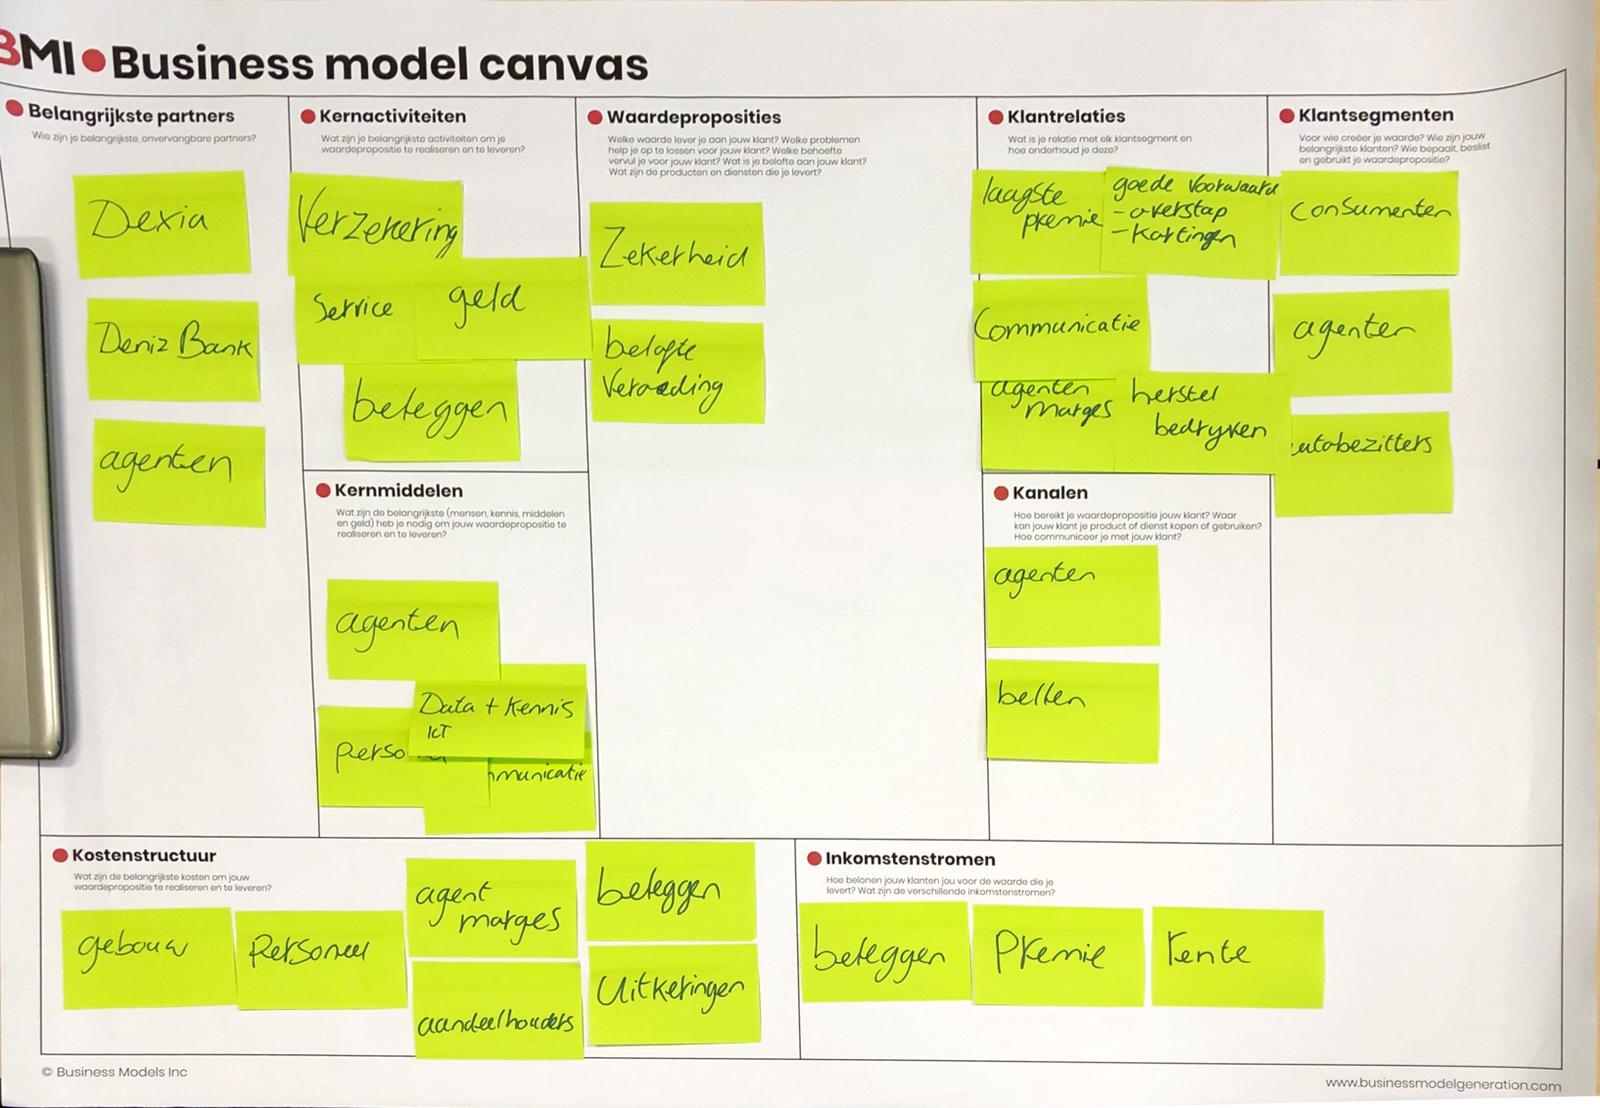 BMI Business model canvas
Belangrijkste partners
Wie zijn je belangrijkste, onvervangbare partners?
Dexia
Deniz Bank
agenten
Kernactiviteiten
Wat zijn je belangrijkste activiteiten om je
waardepropositie te realiseren en te leveren?
Verzekering
Service
geld
beleggen
Kernmiddelen
Wat zijn de belangrijkste (mensen, kennis, middelen
en geld) heb je nodig om jouw waardepropositie te
realiseren en te leveren?
agenten
Data + Kennis
ICT
Perso
municatie
Waardeproposities
Welke waarde lever je aan jouw klant? Welke problemen
help je op te lossen voor jouw klant? Welke behoefte
vervul je voor jouw klant? Wat is je belofte aan jouw klant?
Wat zijn de producten en diensten die je levert?
Zekerheid
belofte
Klantrelaties
Wat is je relatie met elk klantsegment en
hoe onderhoud je deze?
laagste
premie
goede Voorwaard
- overstap
- Kortingen
Communicatie
agenten
marges
herstel
bedryven
Kanalen
Hoe bereikt je waardepropositie jouw klant? Waar
kan jouw klant je product of dienst kopen of gebruiken?
Hoe communiceer je met jouw klant?
agenten
bellen
Klantsegmenten
Voor wie creëer je waarde? Wie zijn jouw
belangrijkste klanten? Wie bepaalt, beslist
en gebruikt je waardepropositie?
Consumenten
agenten
autobezitters
Kostenstructuur
Wat zijn de belangrijkste kosten om jouw
waardepropositie te realiseren en te leveren?
gebouw
Personeel
agent
marges
aandeelhouders
beleggen
Uitkeringen
Inkomstenstromen
Hoe belonen jouw klanten jou voor de waarde die je
levert? Wat zijn de verschillende inkomstenstromen?
beleggen
Premie
rente
© Business Models Inc
www.businessmodelgeneration.com